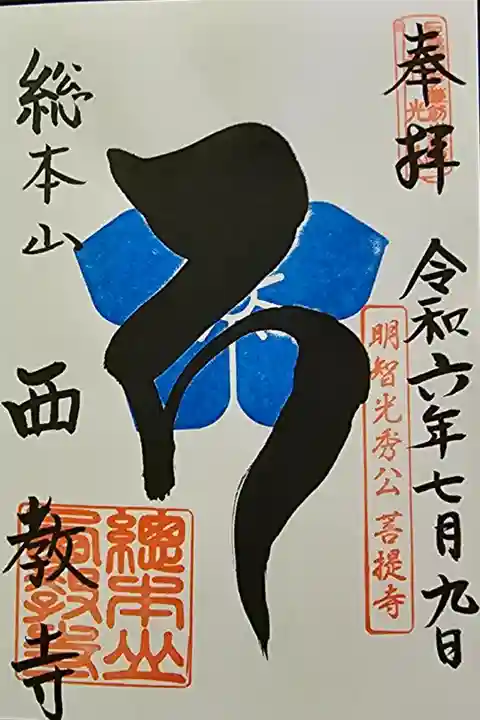 奉拝
令和六年七月九日
明智光秀公 菩提寺
総本山
西教寺
總本山
西教寺